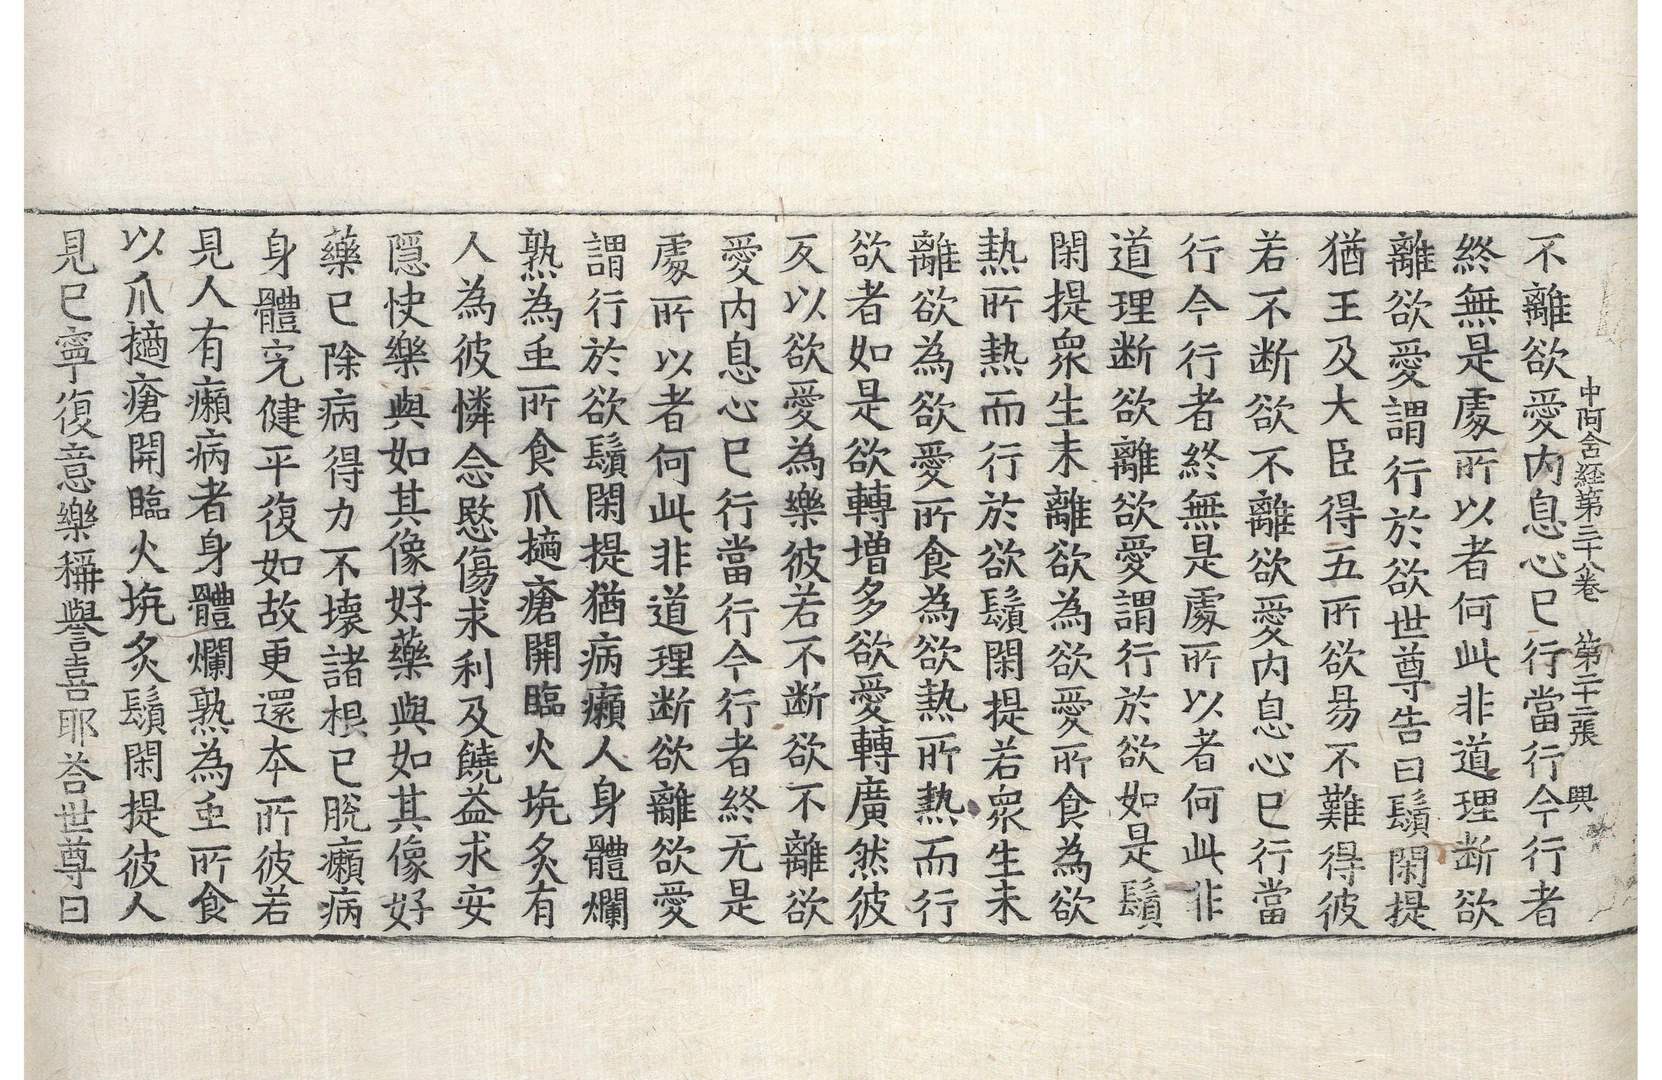 中阿含経第三十八巻　第二十三張　興
不離欲愛内息心已行當行今行者
終無是處所以者何此非道理断欲
離欲愛謂行於欲世尊告曰鬚閑提
猶王及大臣得五所欲易不難得彼
若不断欲不離欲愛内息心已行當
行今行者終無是處所以者何此非
道理断欲離欲愛謂行於欲如是鬚
閑提衆生未離欲為欲愛所食為欲
熱所熱而行於欲鬚閑提若衆生未
離欲為欲愛所食為欲熱所熱而行
欲者如是欲轉増多欲愛轉廣然彼
反以欲愛為樂彼若不断欲不離欲
愛内息心已行當行今行者終无是
處所以者何此非道理断欲離欲愛
謂行於欲鬚閑提猶病癩人身體爛
熟為䖝所食爪擿瘡開臨火坑炙有
人為彼憐念愍傷求利及饒益求安
隱快樂與如其像好藥與如其像好
藥已除病得力不壊諸根已脫癩病
身體完健平復如故更還本所彼若
見人有癩病者身體爛熟為䖝所食
以爪擿瘡開臨火坑炙鬚閑提彼人
見已寧復意樂稱譽喜耶荅世尊曰